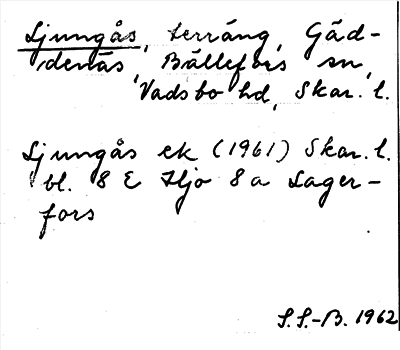 Ljungås, terräng, Gäd-
denäs, Bällefors sn,
Vadsbo hd, Skar. l.
Ljungås ek (1961) Skar. l.
bl. 8 E Hjo 8 a Lager-
fors
S.S.-B. 1962